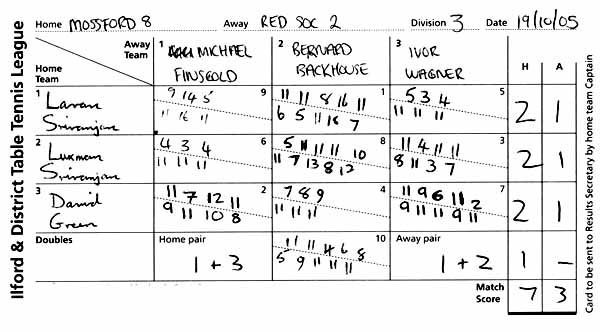 Ilford & District Table Tennis League
Home MOSSFORD 8 Away RED SOC 2 Division 3 Date 19/10/05
Away Team 1 MICHAEL FINSGOLD 2 BERNARD BACKHOUSE 3 IVOR WAGNER H A
Home Team
1 Lavan Srivanjan 9 1 5 2 1
9 14 5 11 11 8 16 11 5 3 4
11 16 11 6 5 11 18 7 11 11 11
2 Lukman Srivanjan 6 8 3 2 1
4 3 4 5 11 11 11 10 11 4 11 11
11 11 11 11 7 13 8 12 8 11 3 7
3 David Green 2 4 7 2 1
11 7 12 11 7 8 9 11 9 6 11 2
9 11 10 8 11 11 11 9 11 11 9 11
Doubles Home pair 10 Away pair
1 + 3 11 11 4 6 8 1 + 2 1 -
5 9 11 11 11
Match Score 7 3
Card to be sent to Results Secretary by home team Captain